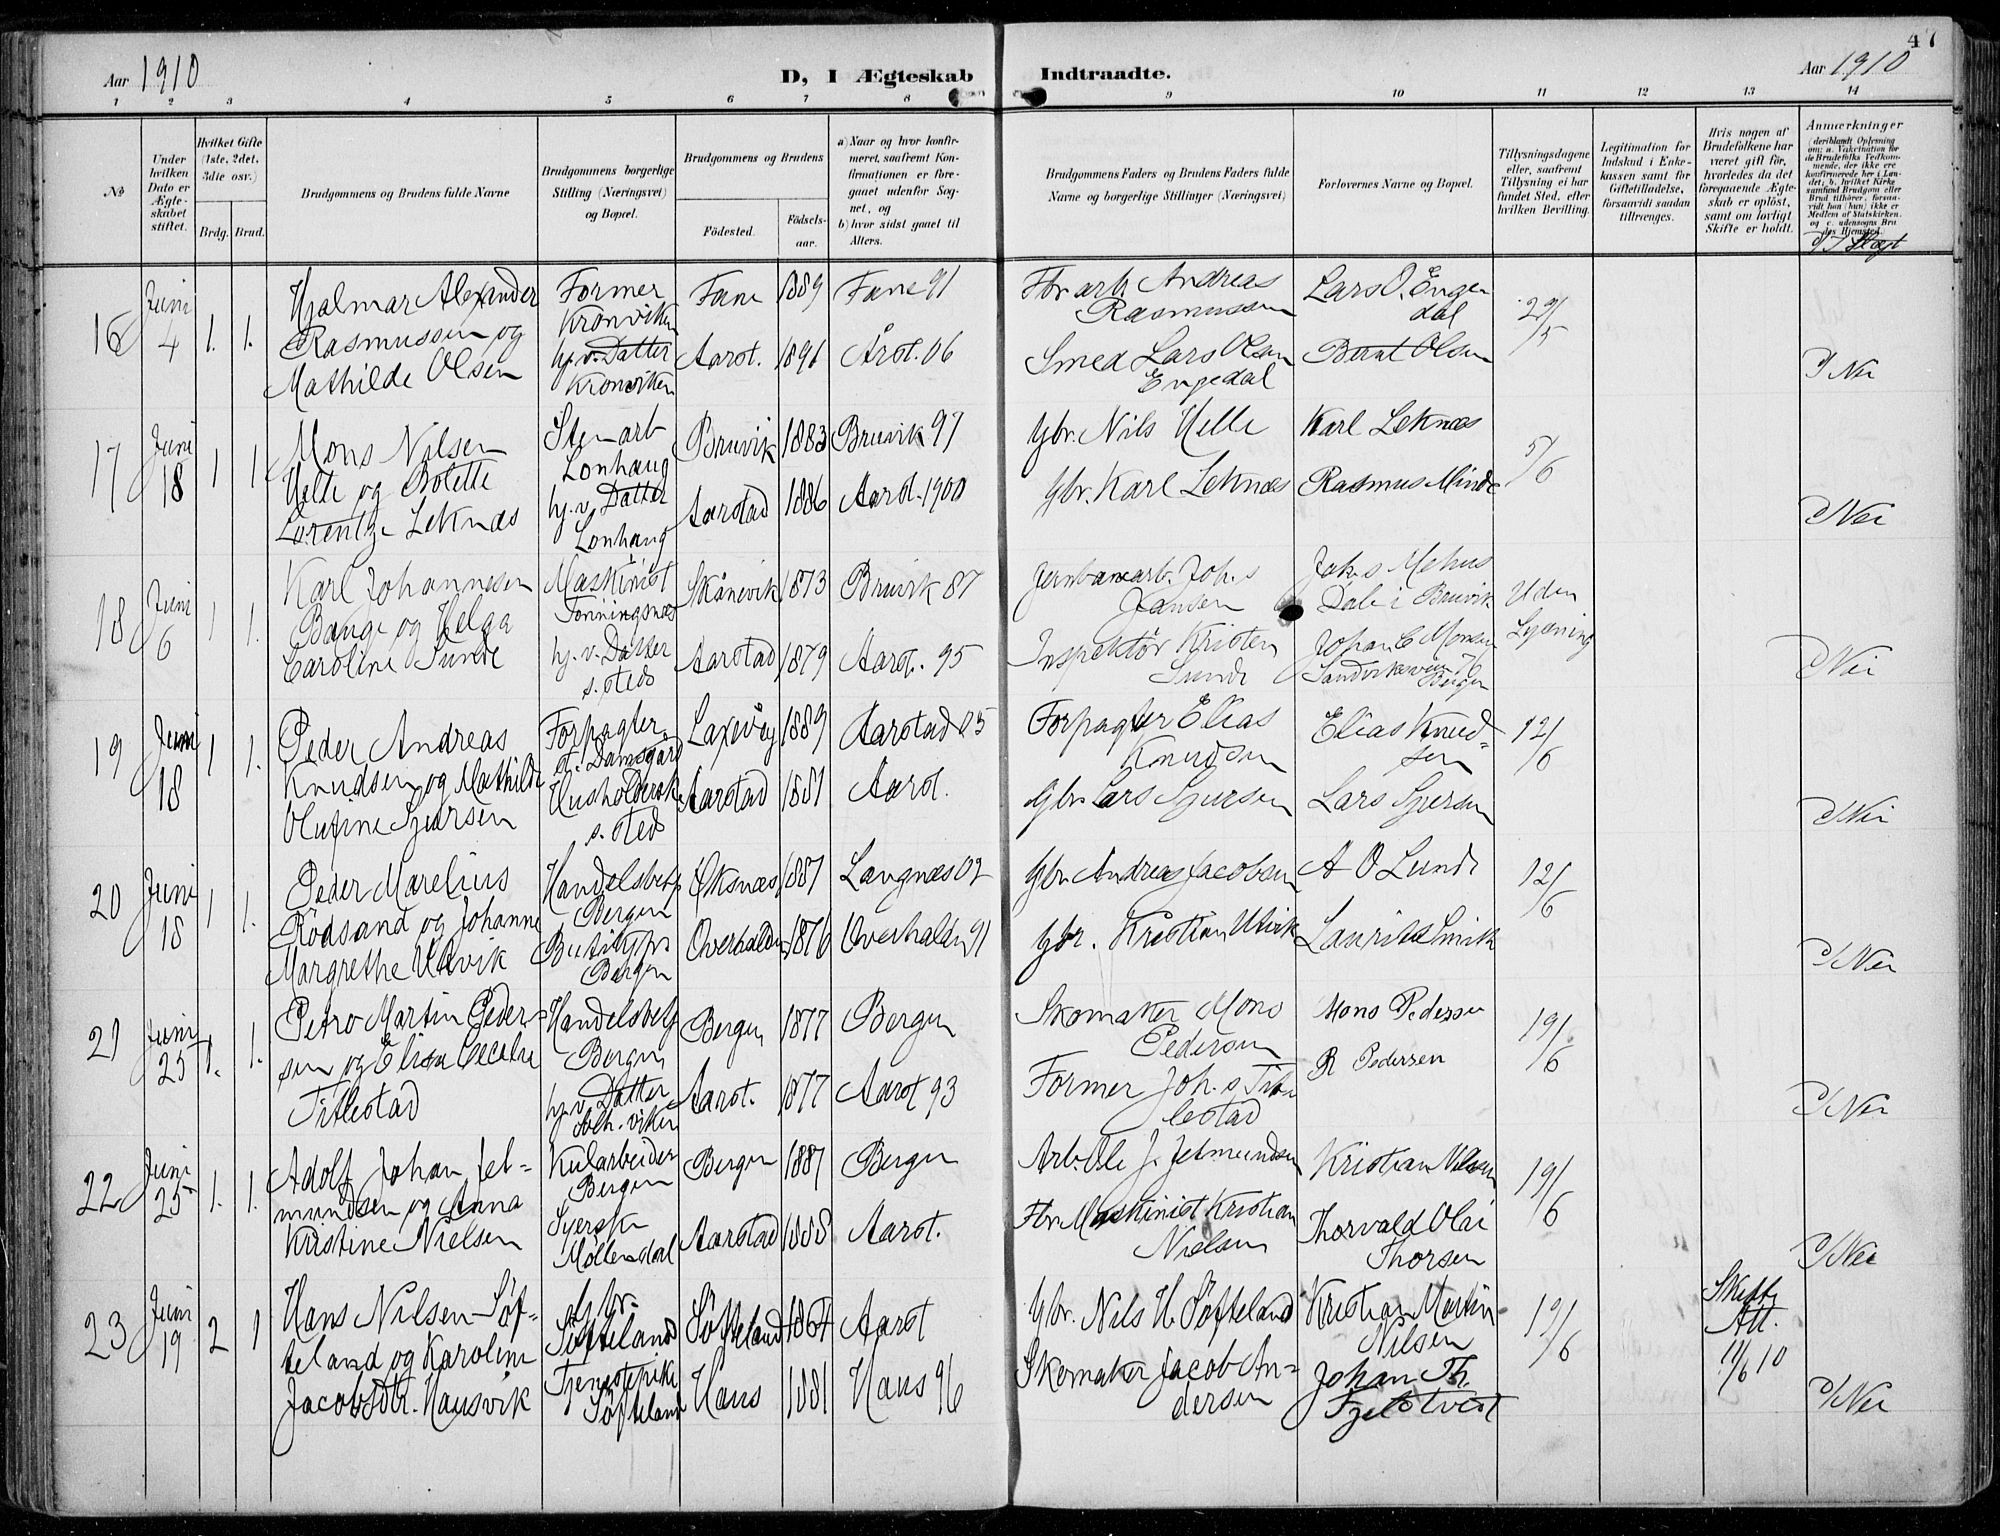 47
Aar 1910
D, I Ægteskab Indtraadte.
Aar 1910
1 2 3 4 5 6 7 8 9 10 11 12 13 14
No
Under hvilken Dato er Ægteskabet stiftet.
Hvilket Gifte (1ste, 2det, 3die osv.)
Brdg. Brud.
Brudgommens og Brudens fulde Navne
Brudgommens borgerlige Stilling (Næringsvei) og Bopæl.
Brudgommens og Brudens
Fødested.
Fødselsaar.
a) Naar og hvor konfirmeret, saafremt Konfirmationen er foregaaet udenfor Sognet, og
b) hvor sidst gaaet til Alters.
Brudgommens Faders og Brudens Faders fulde Navne og borgerlige Stillinger (Næringsvei)
Forlovernes Navne og Bopæl.
Tillysningsdagene eller, saafremt Tillysning ei har fundet Sted, efter hvilken Bevilling.
Legitimation for Indskud i Enkekassen samt for Giftetilladelse, forsaavidt saadan tiltrænges.
Hvis nogen af Brudefolkene har været gift før, hvorledes da det foregaaende Ægteskab er opløst, samt om lovligt Skifte er holdt.
Anmærkninger
16 Juni 4 1. 1.
Hjalmar Alexander
Rasmussen og
Mathilde Olsen
Former
Kronviken
hj.v. Datter
Kronviken
Fane 1889 Fane 91
Aarst. 1891 Årst. 06
Fbrarb. Andreas
Rasmussen
Smed Lars Olsen
Engedal
Lars O. Enge
dal
Bernt Olsen
29/5
Nei
17 Juni 18 1 1
Mons Nilsen
Helle og Bolette
Lorentze Leknæs
Stenarb
Lonhaug
hj.v. Datter
Lonhaug
Bruvik 1883 Bruvik 97
Aarstad 1886 Aarst. 1900
Gbr. Nils Helle
Gbr. Karl Leknæs
Karl Leknæs
Rasmus Minde
5/6
Nei
18 Juni 6 1 1.
Karl Johannesen
Bauge og Helga
Caroline Sunde
Maskinist
Fonningsnæs
hj.v. Datter
s. steds
Skånevik 1873 Bruvik 87
Aarstad 1879 Aarst. 95
Jernbanearb. Joh.s
Jansen
Inspektør Kristen
Sunde
Joh.s Mehus
Dale i Bruvik
Johan C Monsen
Sandviksveien 76
Bergen
Uden
Lysning
Nei
19 Juni 18 1 1.
Peder Andreas
Knudsen og Mathilde
Olufine Sjursen
Forpagter
st. Damsgård
Husholdersk.
s. sted
Laxevåg 1889 Aarstad 05
Aarstad 1881 Aarst.
Forpagter Elias
Knudsen
Gbr. Lars Sjursen
Elias Knud-
sen
Lars Sjursen
12/6
Nei
20 Juni 18 1 1.
Peder Marelius
Rödsand og Johanne
Margrethe Utvik
Handelsbetj
Bergen
Bergen
Øksnæs 1887 Langnæs 02
Overhalden 1876 Overhalden 91
Gbr. Andreas Jacobsen
Gbr. Kristian Utvik
A O Lunde
Lauritz Smith
12/6
Nei
21 Juni 25 1. 1.
Petro Martin Peder-
sen og Elisa Cecelie
Titlestad
Handelsbetj
Bergen
hj.v. Datter
Solh. viken
Bergen 1877 Bergen
Aarst. 1877 Aarst 93
Skomaker Mons
Pedersen
Former Joh.s Tit
lestad
Mons Pedersen
R Pedersen
19/6
Nei
22 Juni 25 1. 1.
Adolf Johan Jet-
mundsen og Anna
Kristine Nielsen
Kularbeider
Bergen
Syerske
Møllendal
Bergen 1887 Bergen
Aarstad 1888 Aarst.
Arb. Ole J. Jetmundsen
Fbr. Maskinist Kristian
Nielsen
Kristian Nilsen
Thorvald Olai
Thorsen
19/6
Nei
23 Juni 19 2 1
Hans Nilsen Söf-
teland og Karoline
Jacobsdtr. Hausvik
Söfteland
Tjenestepike
Söfteland
Söfteland 1864 Aarst
Haus 1881 Haus 96
Gbr. Nils H. Söfteland
Skomaker Jacob An-
dersen
Kristian Martin
Nilsen
Johan Th.
Fjeldtvedt
12/6
Skifte
Att.
11/6 10
Nei